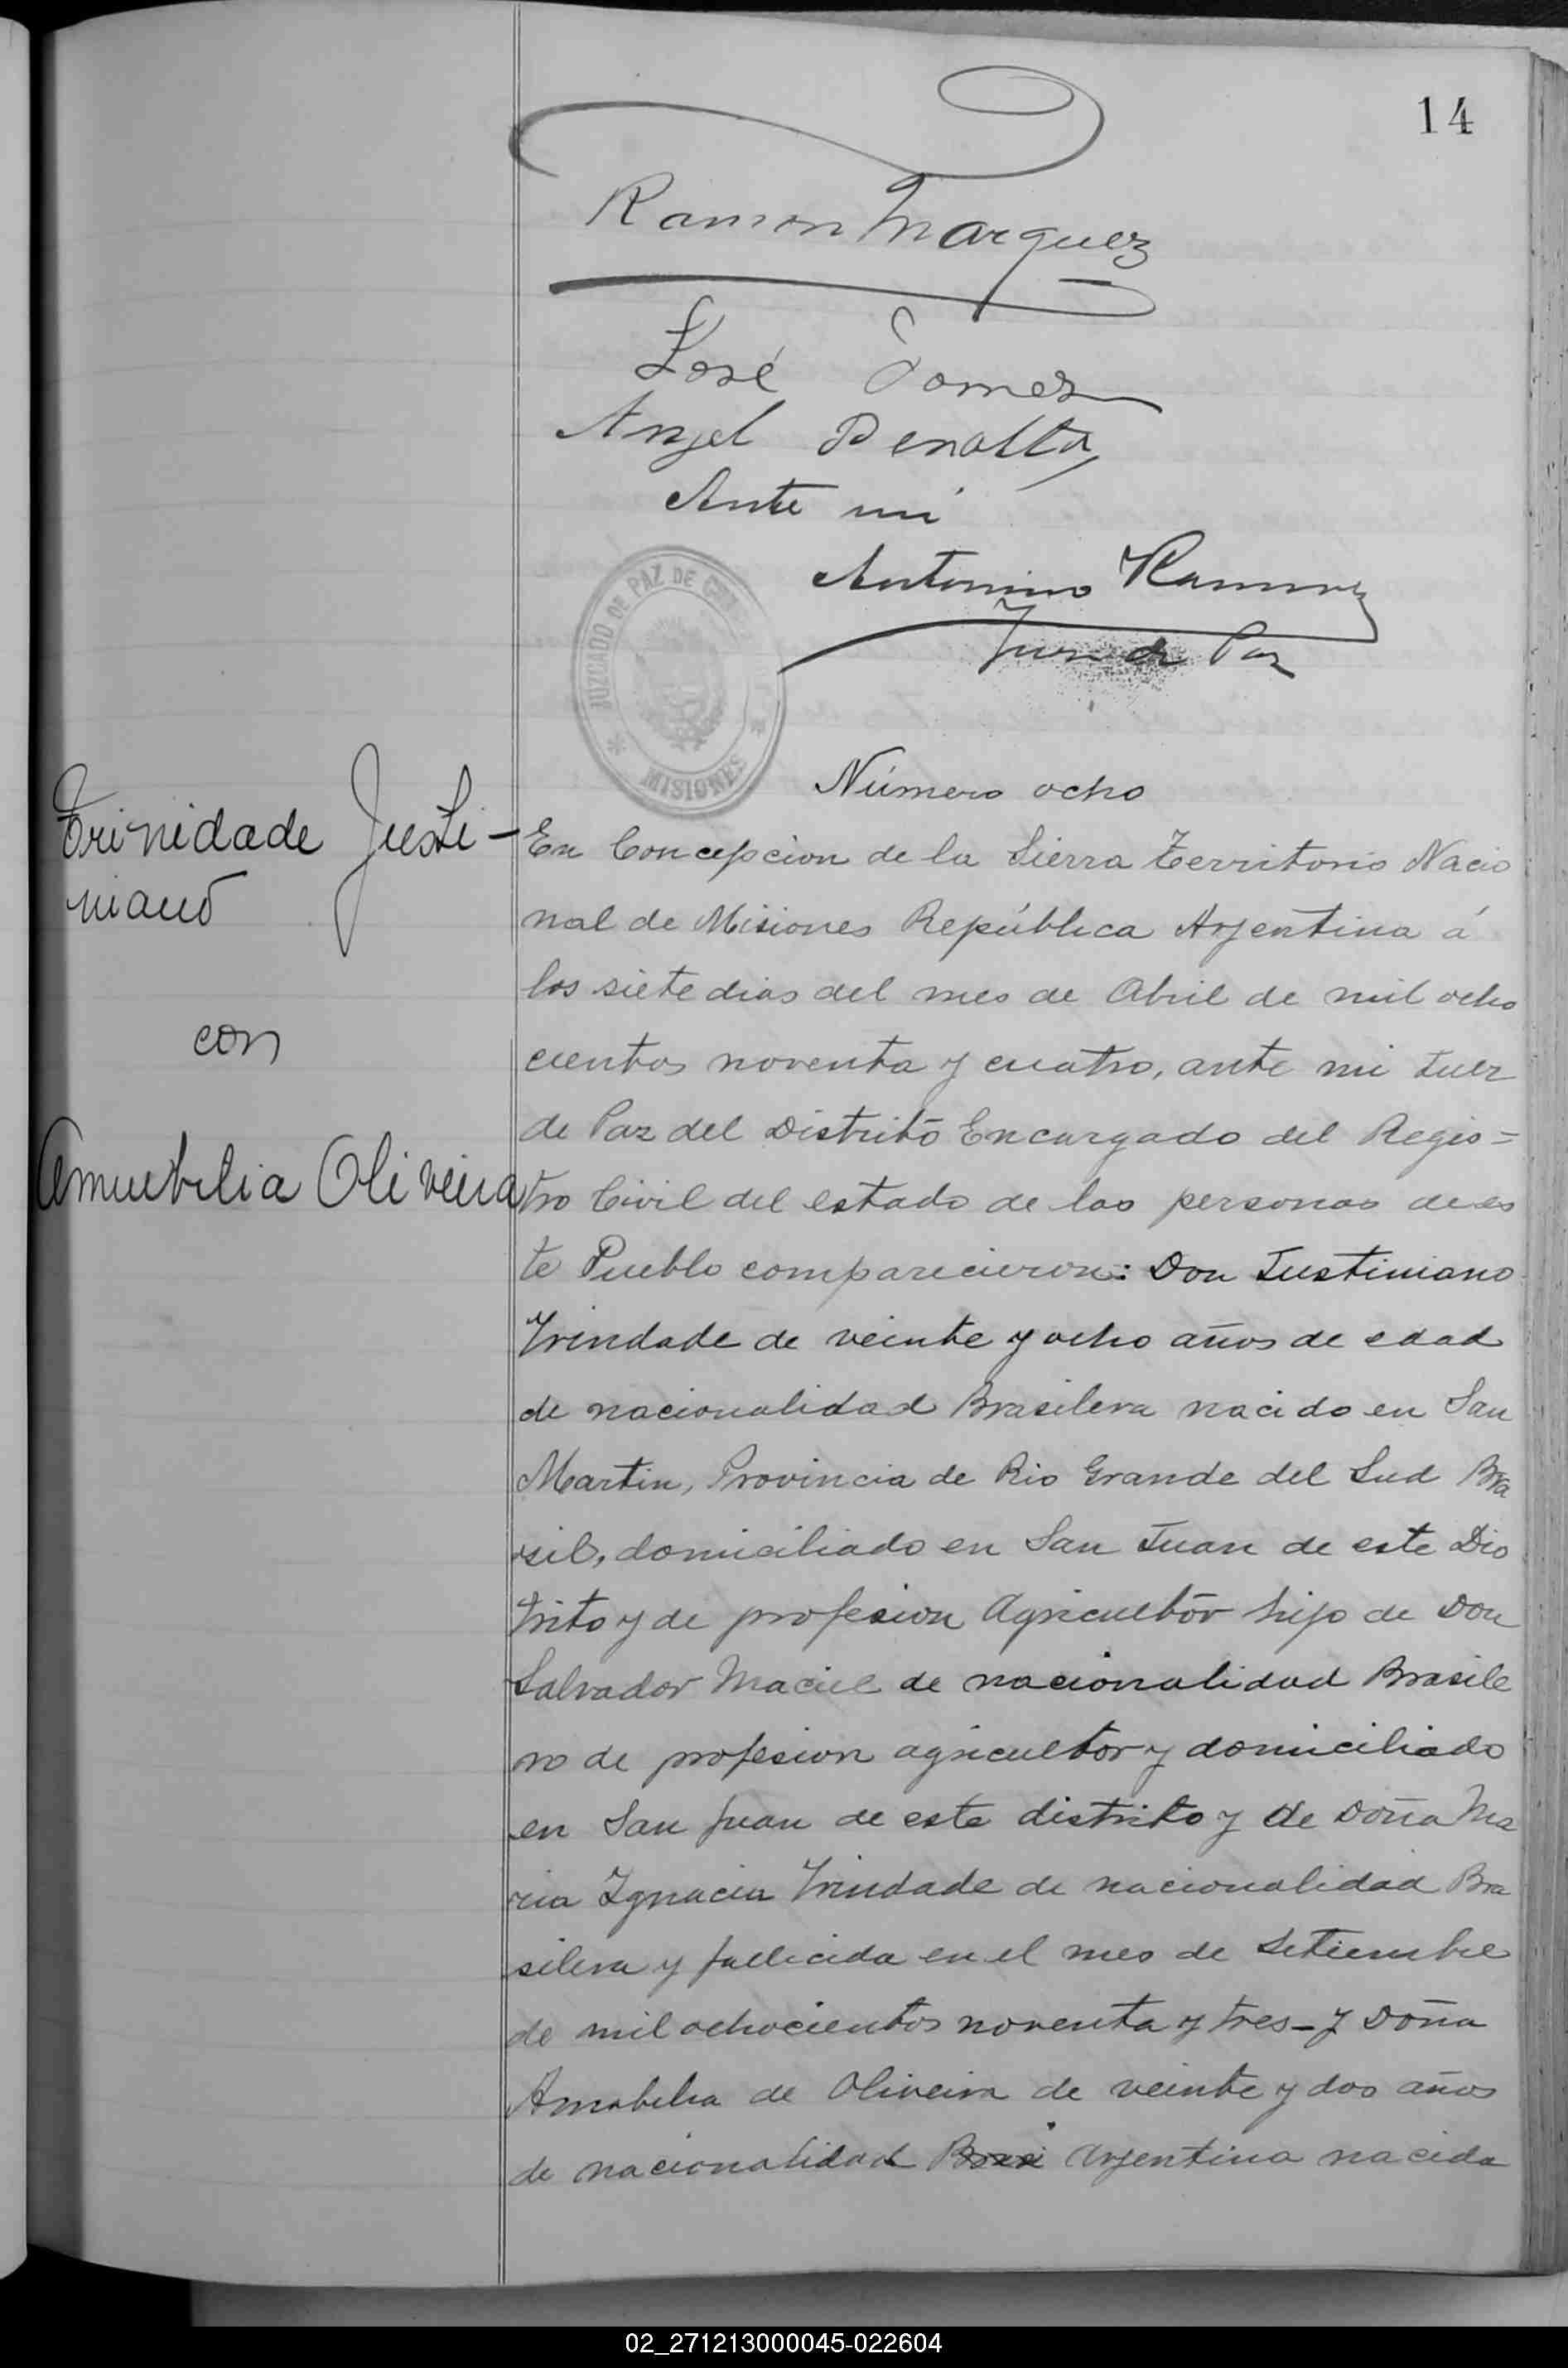 14
Ramon Marquez
José Gomez
Angel Peralta
Ante mi
Antonino Ramirez
Juez de Paz
JUZGADO DE PAZ DE
MISIONES
Número ocho
Trinidade Justi-
niano
con
Amubilia Oliveira
En Concepcion de la Sierra Territorio Nacio
nal de Misiones República Argentina á
los siete dias del mes de Abril de mil ocho
cientos noventa y cuatro, ante mi Juez
de Paz del Distrito Encargado del Regis=
tro Civil del estado de las personas de es
te Pueblo comparecieron: Don Justiniano
Trindade de veinte y ocho años de edad
de nacionalidad Brasilera nacido en San
Martin, Provincia de Rio Grande del Sud Bra
sil, domiciliado en San Juan de este Dis
trito y de profesion Agricultor hijo de Don
Salvador Maciel de nacionalidad Brasile
ro de profesion agricultor y domiciliado
en San Juan de este distrito y de Doña Ma
ria Ignacia Trindade de nacionalidad Bra
silera y fallecida en el mes de Setiembre
de mil ochocientos noventa y tres_y Doña
Amabilia de Oliveira de veinte y dos años
de nacionalidad Brasi Argentina nacida
02_271213000045-022604